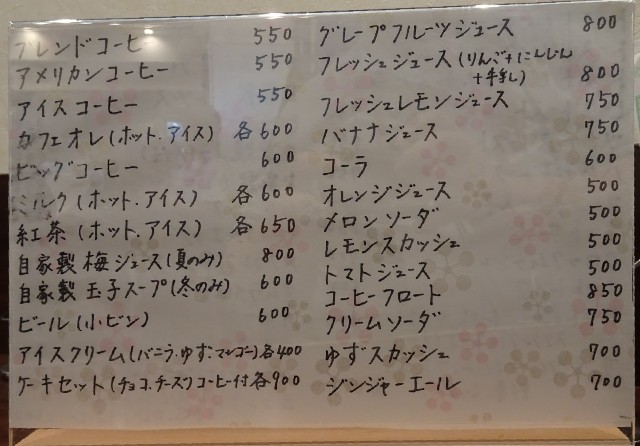 ブレンドコーヒー 550
アメリカンコーヒー 550
アイスコーヒー 550
カフェオレ(ホット.アイス) 各600
ビッグコーヒー 600
ミルク(ホット.アイス) 各600
紅茶(ホット.アイス) 各650
自家製 梅ジュース(夏のみ) 800
自家製 玉子スープ(冬のみ) 600
ビール(小ビン) 600
アイスクリーム(バニラ・ゆず・マンゴー)各400
ケーキセット(チョコ、チーズ)コーヒー付各900
グレープフルーツジュース 800
フレッシュジュース(りんご+にんじん
フレッシュレモンジュース 750
バナナジュース 750
コーラ 600
オレンジジュース 500
メロンソーダ 500
レモンスカッシュ 500
トマトジュース 500
コーヒーフロート 850
クリームソーダ 750
ゆずスカッシュ 700
ジンジャーエール 700